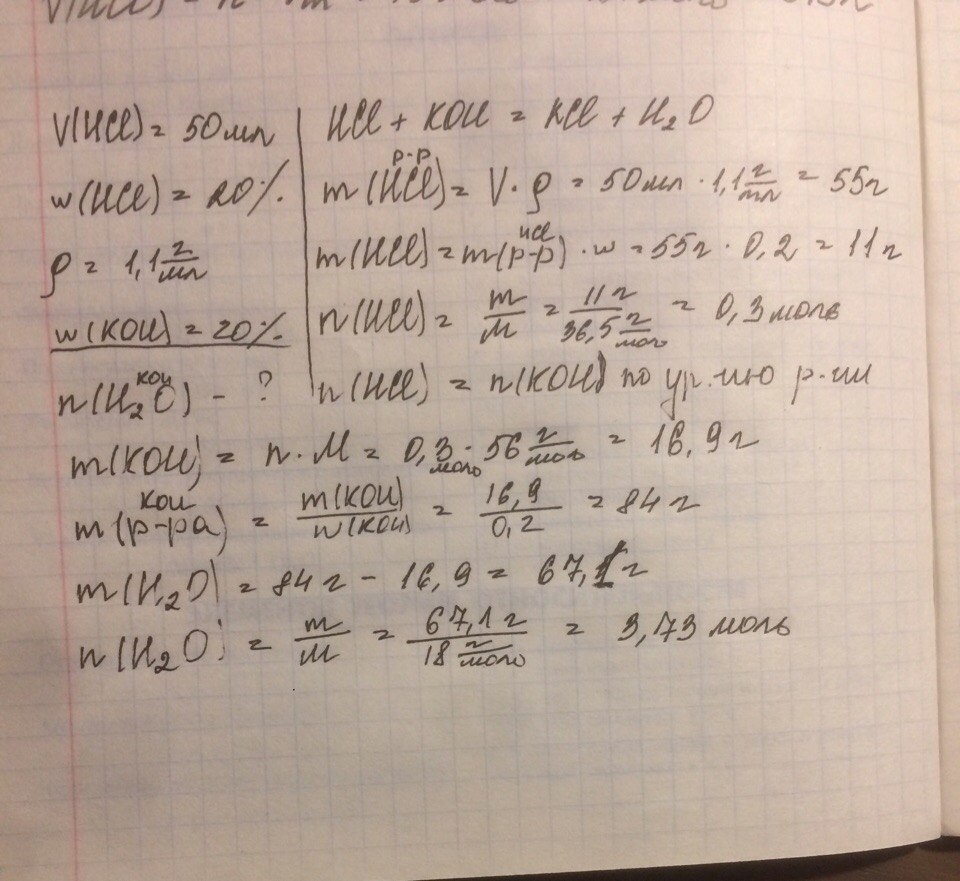 V(HCl) = 50 мл
w(HCl) = 20%
ρ = 1,1 г/мл
w(KOH) = 20%
n(H₂O) KOH - ?
HCl + KOH = KCl + H₂O
m(HCl) р-р = V · ρ = 50 мл · 1,1 г/мл = 55 г
m(HCl) = m(р-р) HCl · w = 55 г · 0,2 = 11 г
n(HCl) = m/M = 11 г / 36,5 г/моль = 0,3 моль
n(HCl) = n(KOH) по ур.-ию р-ии
m(KOH) = n · M = 0,3 моль · 56 г/моль = 16,9 г
m(р-ра) KOH = m(KOH) / w(KOH) = 16,9 / 0,2 = 84 г
m(H₂O) = 84 г - 16,9 = 67,1 г
n(H₂O) = m/M = 67,1 г / 18 г/моль = 3,73 моль